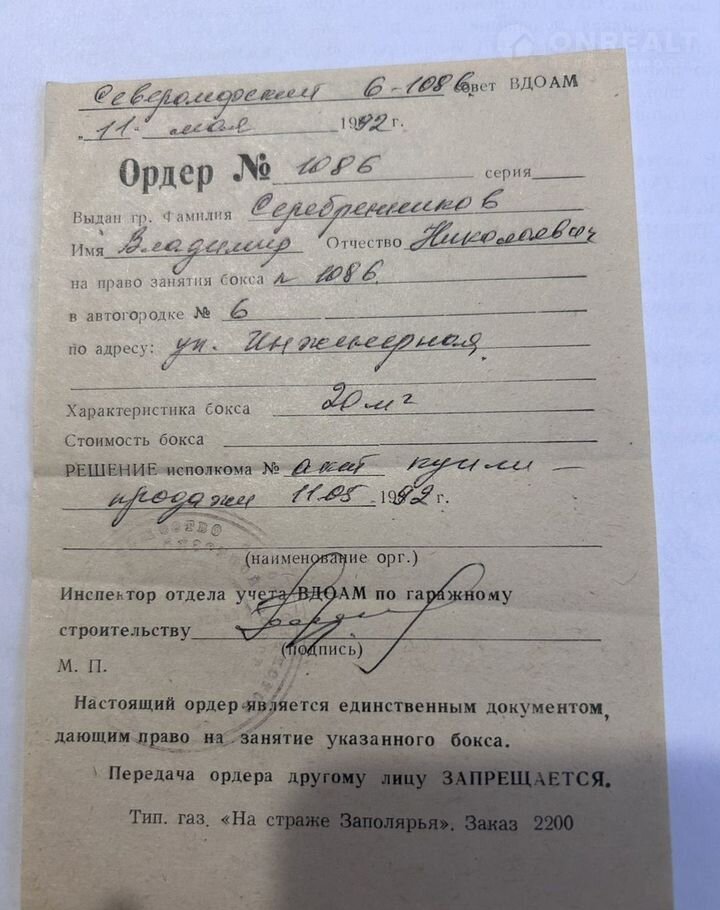 ONREALT
Североморский 6-1086 совет ВДОАМ
„ 11 " мая 1992 г.
Ордер № 1086 серия
Выдан гр. Фамилия Серебренников
Имя Владимир Отчество Николаевич
на право занятия бокса № 1086
в автогородке № 6
по адресу: ул. Инженерная
Характеристика бокса 20 м²
Стоимость бокса
РЕШЕНИЕ исполкома № акт купли –
продажи 11.05 1992 г.
(наименование орг.)
Инспектор отдела учета ВДОАМ по гаражному
строительству
(подпись)
М. П.
Настоящий ордер является единственным документом,
дающим право на занятие указанного бокса.
Передача ордера другому лицу ЗАПРЕЩАЕТСЯ.
Тип. газ. «На страже Заполярья». Заказ 2200